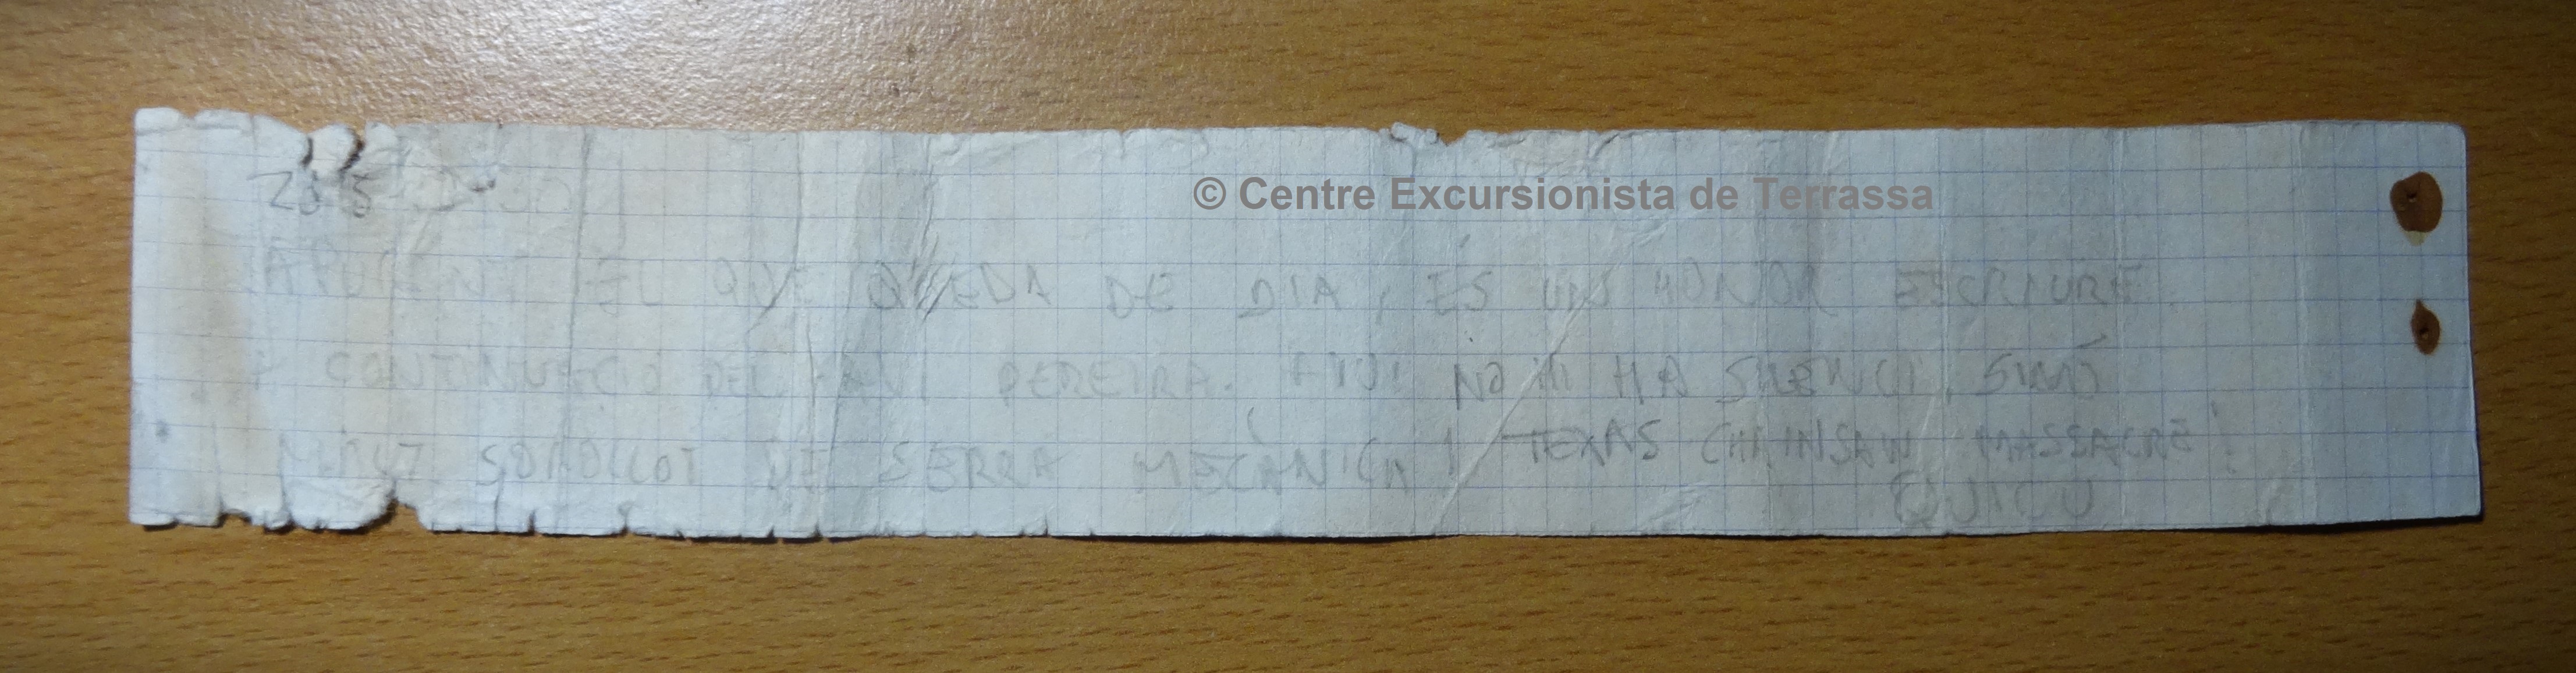 © Centre Excursionista de Terrassa
APURANT EL QUE QUEDA DE DIA, ÉS UN HONOR ESCRIURE
A CONTINUACIÓ DEL PEREIRA. AQUI NO HI HA SILENCI, SINÓ
MOLT SOROLLOT DE SERRA MECÀNICA I TEXAS CHAINSAW MASSACRE!
QUICU